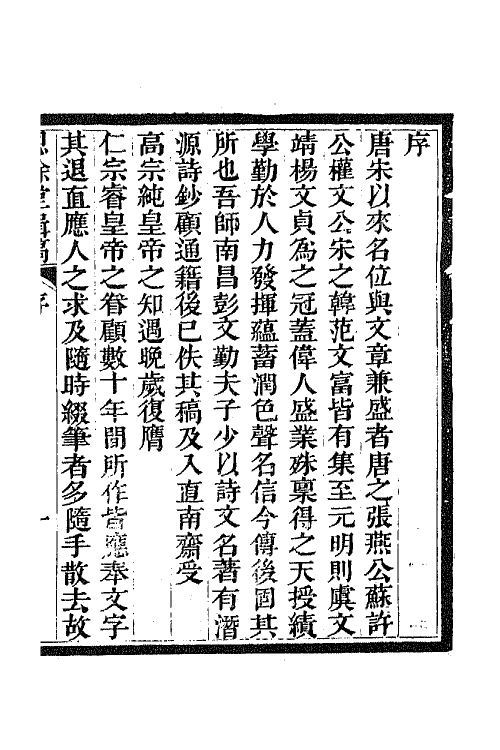 序
唐宋以來名位與文章兼盛者唐之張燕公蘇許
公權文公宋之韓范文富皆有集至元明則虞文
靖楊文貞為之冠蓋偉人盛業殊稟得之天授績
學勤於人力發揮蘊蓄潤色聲名信今傳後固其
所也吾師南昌彭文勤夫子少以詩文名著有潛
源詩鈔顧通籍後已佚其稿及入直南齋受
高宗純皇帝之知遇晚歲復膺
仁宗睿皇帝之眷顧數十年間所作皆應奉文字
其退直應人之求及隨時綴筆者多隨手散去故
恩餘堂輯稿 序 一